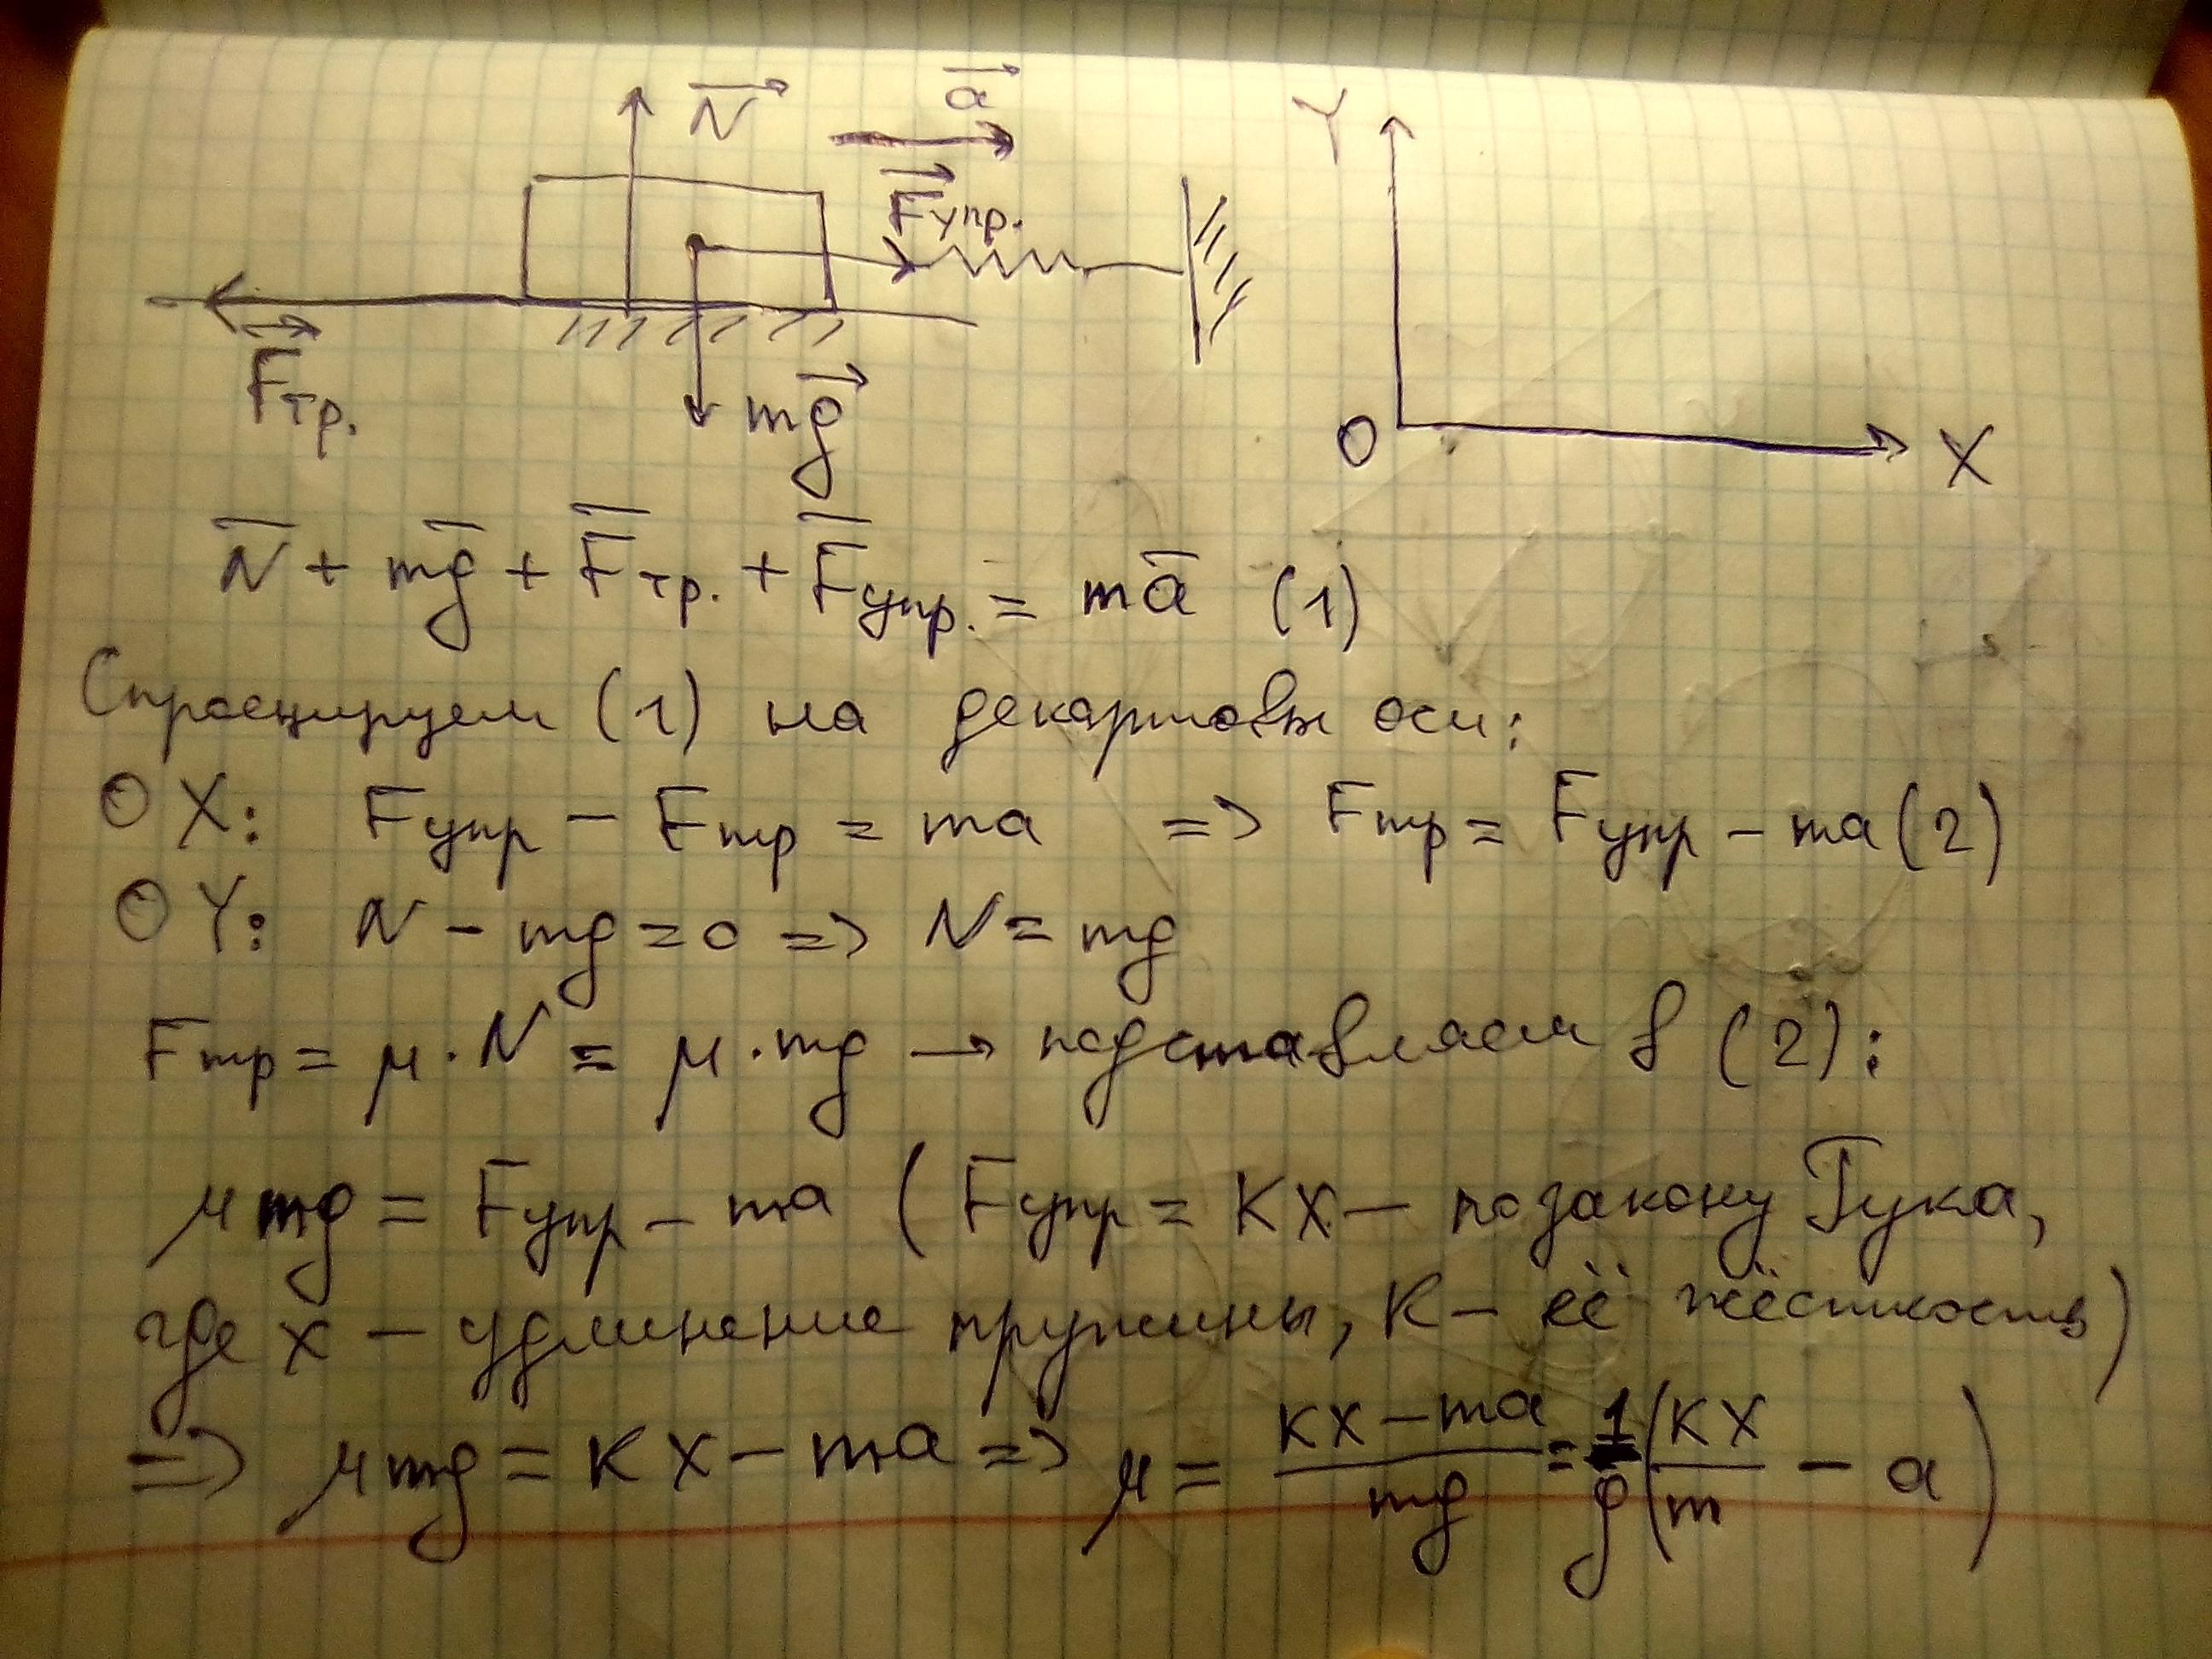 N a
Y
Fупр.
Fтр.
mg
O X
N + mg + Fтр. + Fупр. = ma (1)
Спроецируем (1) на декартовы оси:
OX: Fупр - Fтр = ma => Fтр = Fупр - ma (2)
OY: N - mg = 0 => N = mg
Fтр = μ·N = μ·mg → подставляем в (2):
μmg = Fупр - ma (Fупр = KX - по закону Гука,
где x - удлинение пружины, K - её жёсткость)
=> μmg = KX - ma => μ = (KX - ma)/mg = 1/g (KX/m - a)